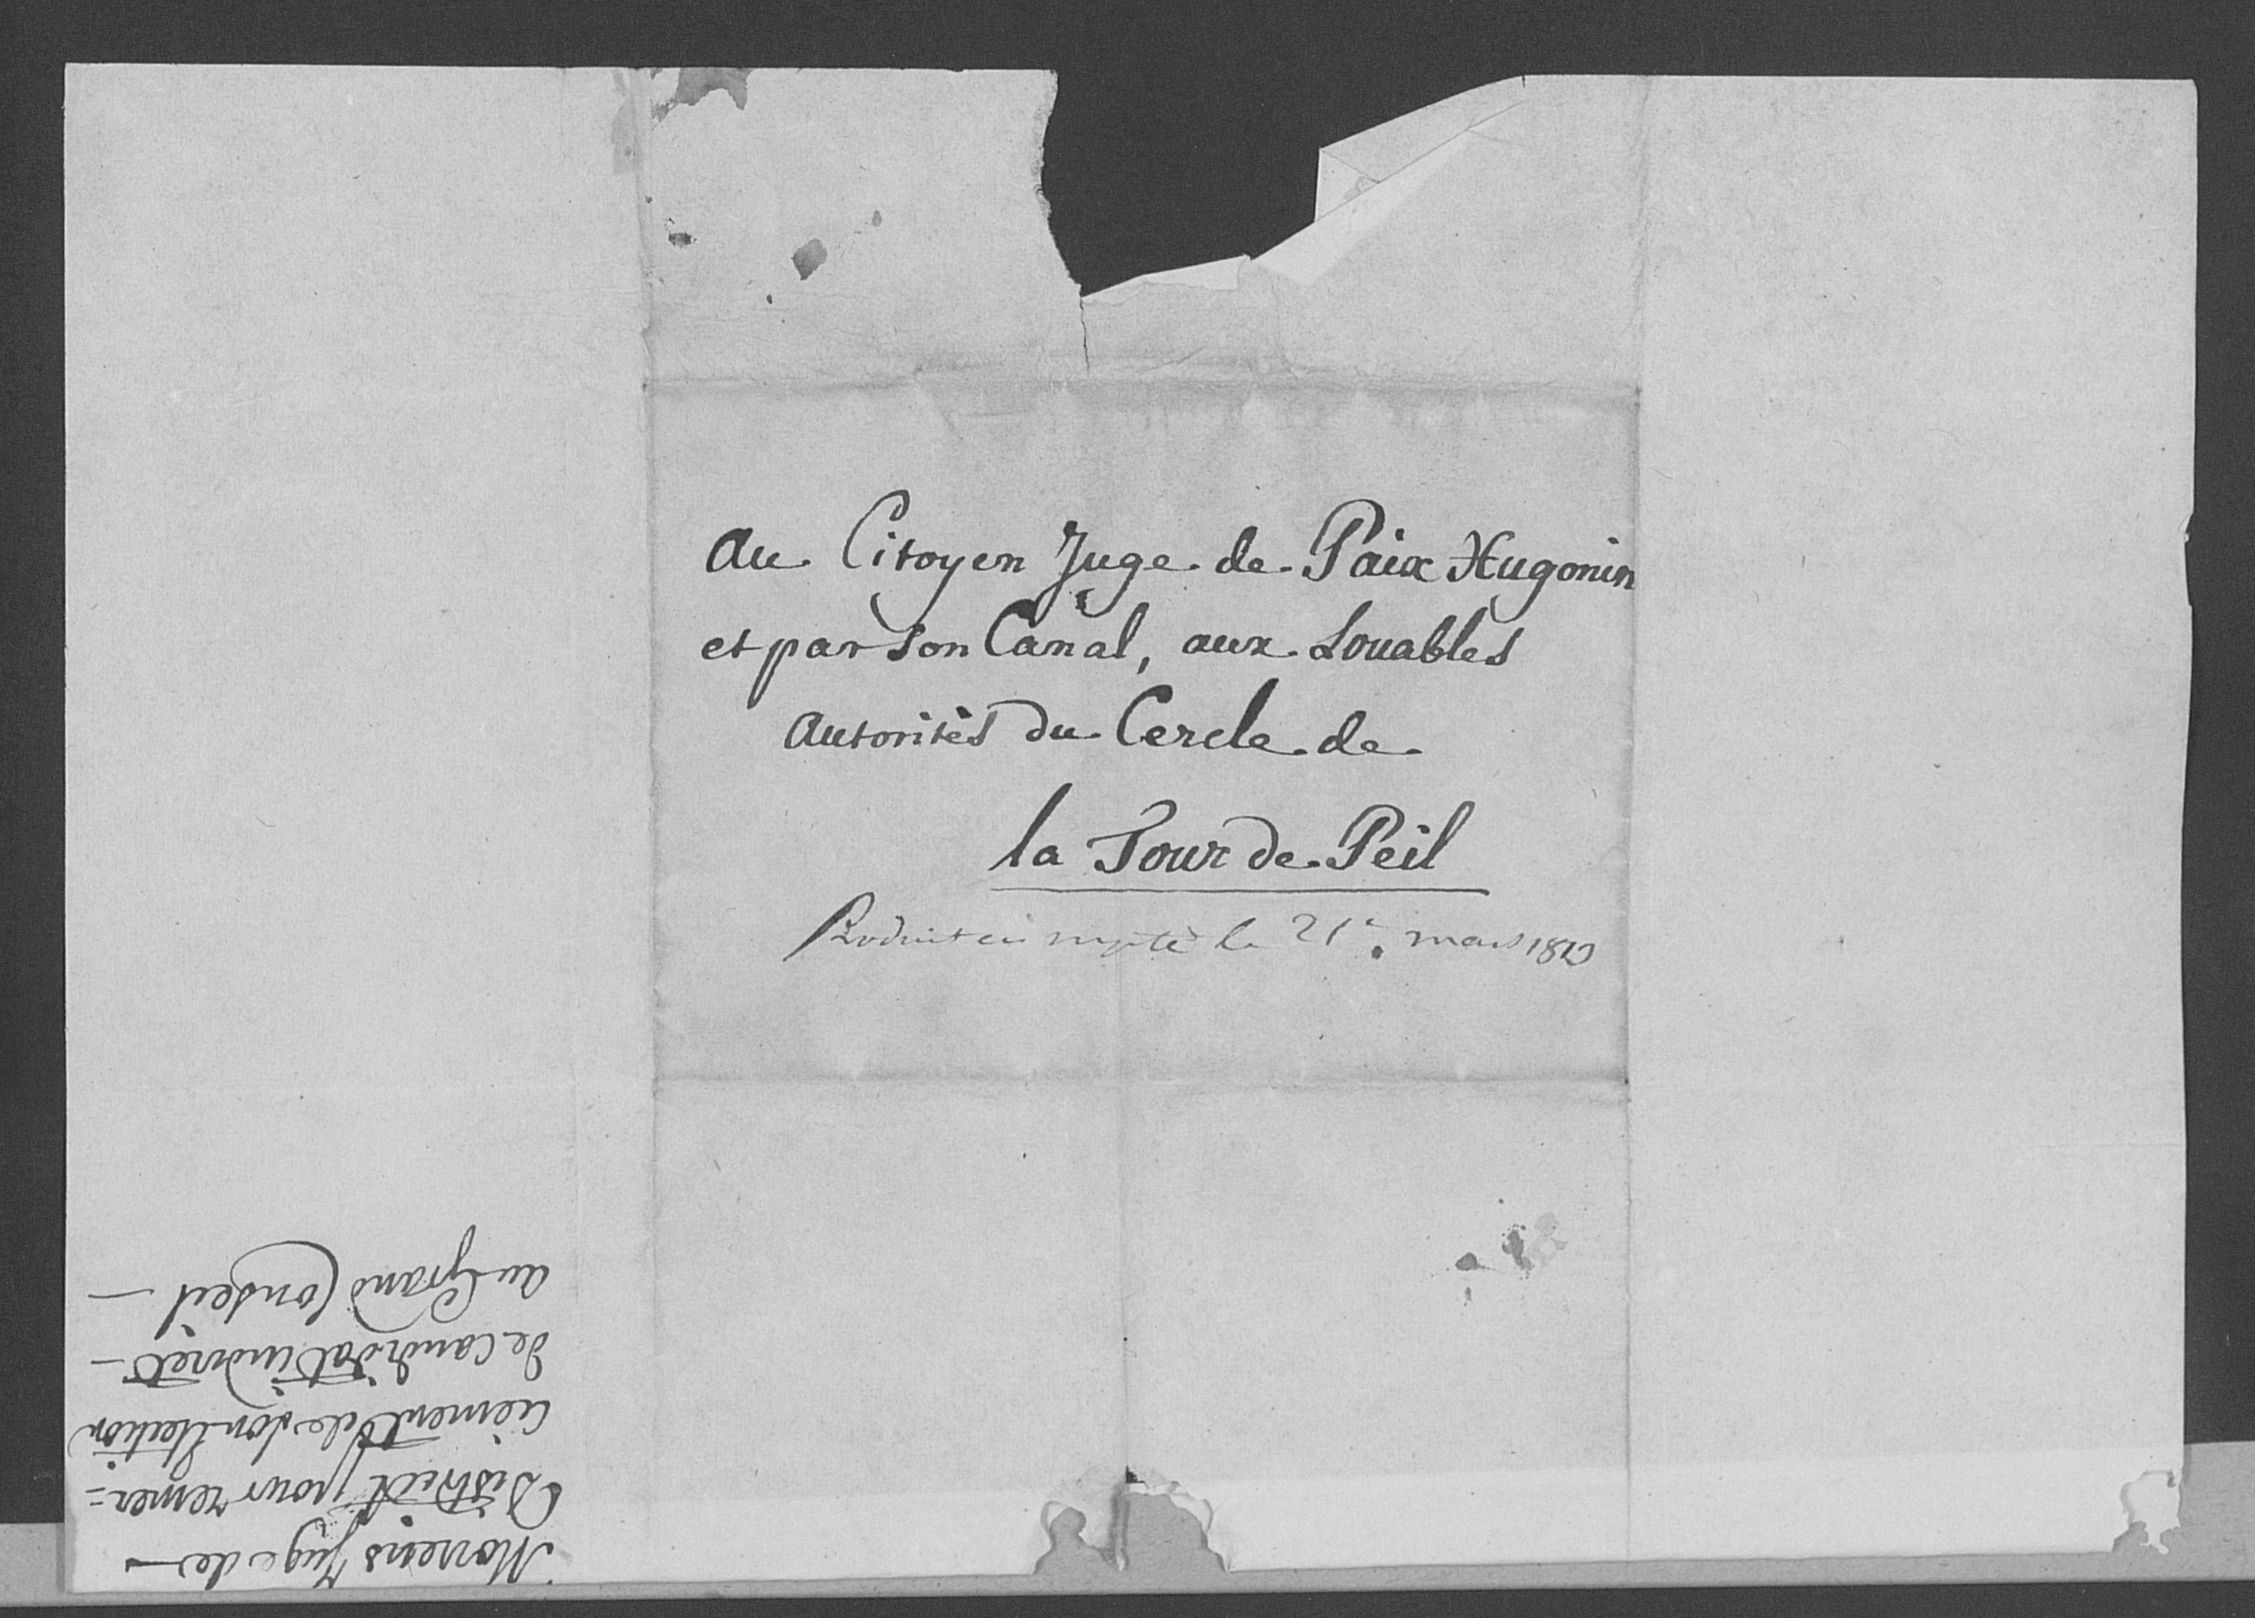 Au Citoyen Juge de Paix Hugonin
et par son Canal, aux Louables
Autorités du Cercle de
la Tour de Peil
Produit en le 21e. mars 1813
Morrens Juge de —
District pour remer=
ciement de son Election
de Candidat indirect —
au Grand Conseil —